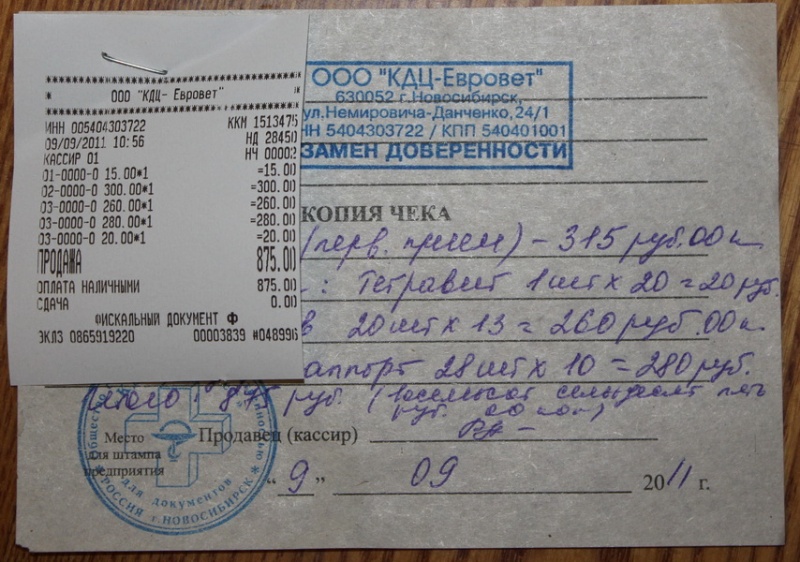 ООО "КДЦ- Евровет"
ИНН 005404303722 ККМ 1513475
09/09/2011 10:56 НД 28450
КАССИР 01 НЧ 00002
01-0000-0 15.00*1 =15.00
02-0000-0 300.00*1 =300.00
03-0000-0 260.00*1 =260.00
03-0000-0 280.00*1 =280.00
03-0000-0 20.00*1 =20.00
ПРОДАЖА 875.00
ОПЛАТА НАЛИЧНЫМИ 875.00
СДАЧА 0.00
ФИСКАЛЬНЫЙ ДОКУМЕНТ Ф
ЭКЛЗ 0865919220 00003839 #048996
ООО "КДЦ-Евровет"
630052 г.Новосибирск,
ул.Немировича-Данченко,24/1
НН 5404303722 / КПП 540401001
ВЗАМЕН ДОВЕРЕННОСТИ
КОПИЯ ЧЕКА
(перв. прием) - 315 руб. 00 к
: Тетравит 1 шт х 20 = 20 руб.
в 20 шт х 13 = 260 руб. 00 к.
аппорт 28 шт х 10 = 280 руб.
Итого: 875 руб. (восемьсот семьдесят пять
руб. 00 коп)
Продавец (кассир)
Место
для штампа
предприятия
для документов
РОССИЯ г.НОВОСИБИРСК
"9" 09 2011 г.